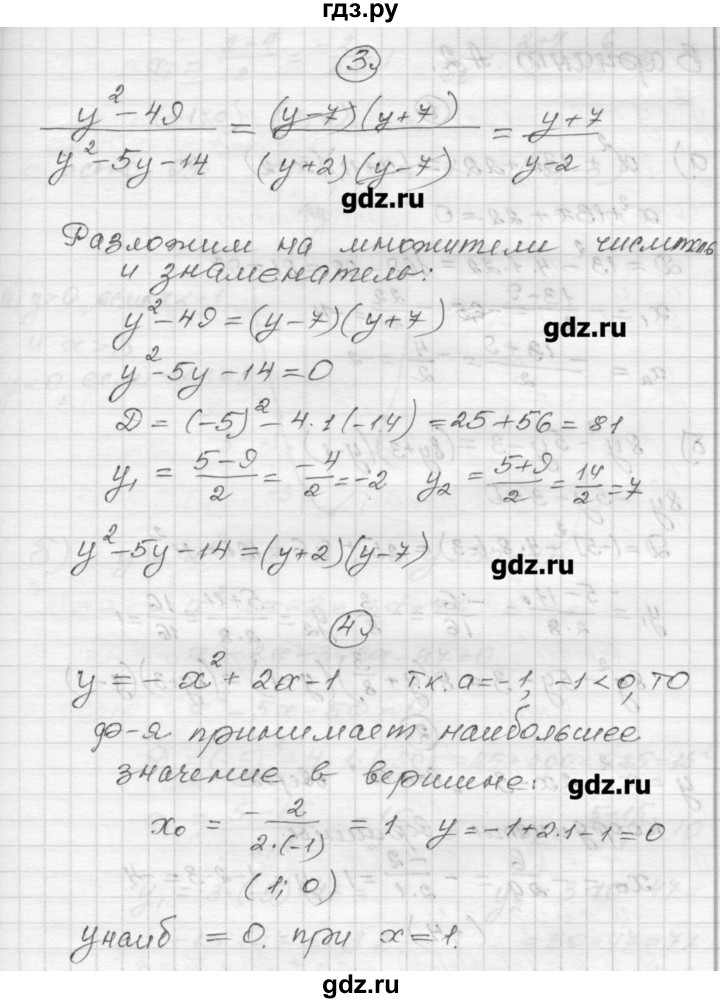 гдз.ру
3.
y² − 49 / y² − 5y − 14 = (y − 7)(y + 7) / (y + 2)(y − 7) = y + 7 / y − 2
gdz.ru
Разложим на множители числитель
и знаменатель:
y² − 49 = (y − 7)(y + 7)
gdz.ru
y² − 5y − 14 = 0
D = (−5)² − 4·1(−14) = 25 + 56 = 81
y₁ = 5 − 9 / 2 = −4 / 2 = −2 y₂ = 5 + 9 / 2 = 14 / 2 = 7
y² − 5y − 14 = (y + 2)(y − 7)
gdz.ru
4.
y = − x² + 2x − 1 т.к. a = −1, −1 < 0, то
ф-я принимает наибольшее
значение в вершине:
gdz.ru
x₀ = − 2 / 2·(−1) = 1 y = −1 + 2·1 − 1 = 0
(1; 0)
yнаиб = 0. при x = 1.
gdz.ru